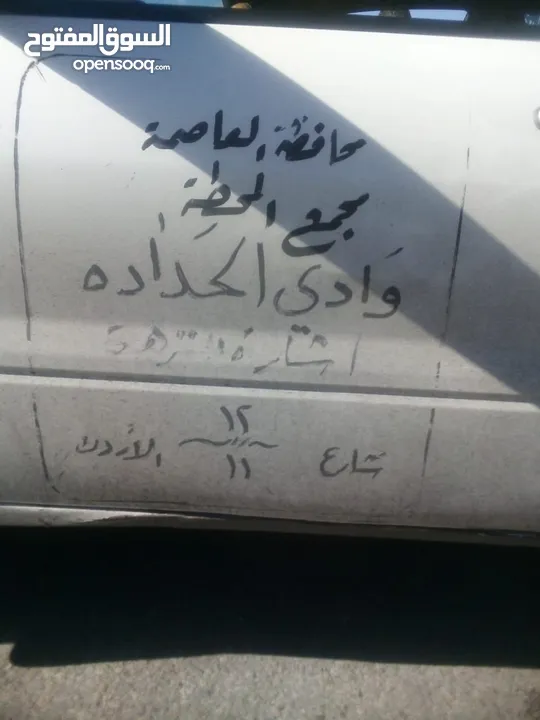 السوق المفتوح
opensooq.com
محافظة العاصمة
مجمع المحطة
وادي الحداده
اشارة النزهة
١٢
شارع الأردن
١١